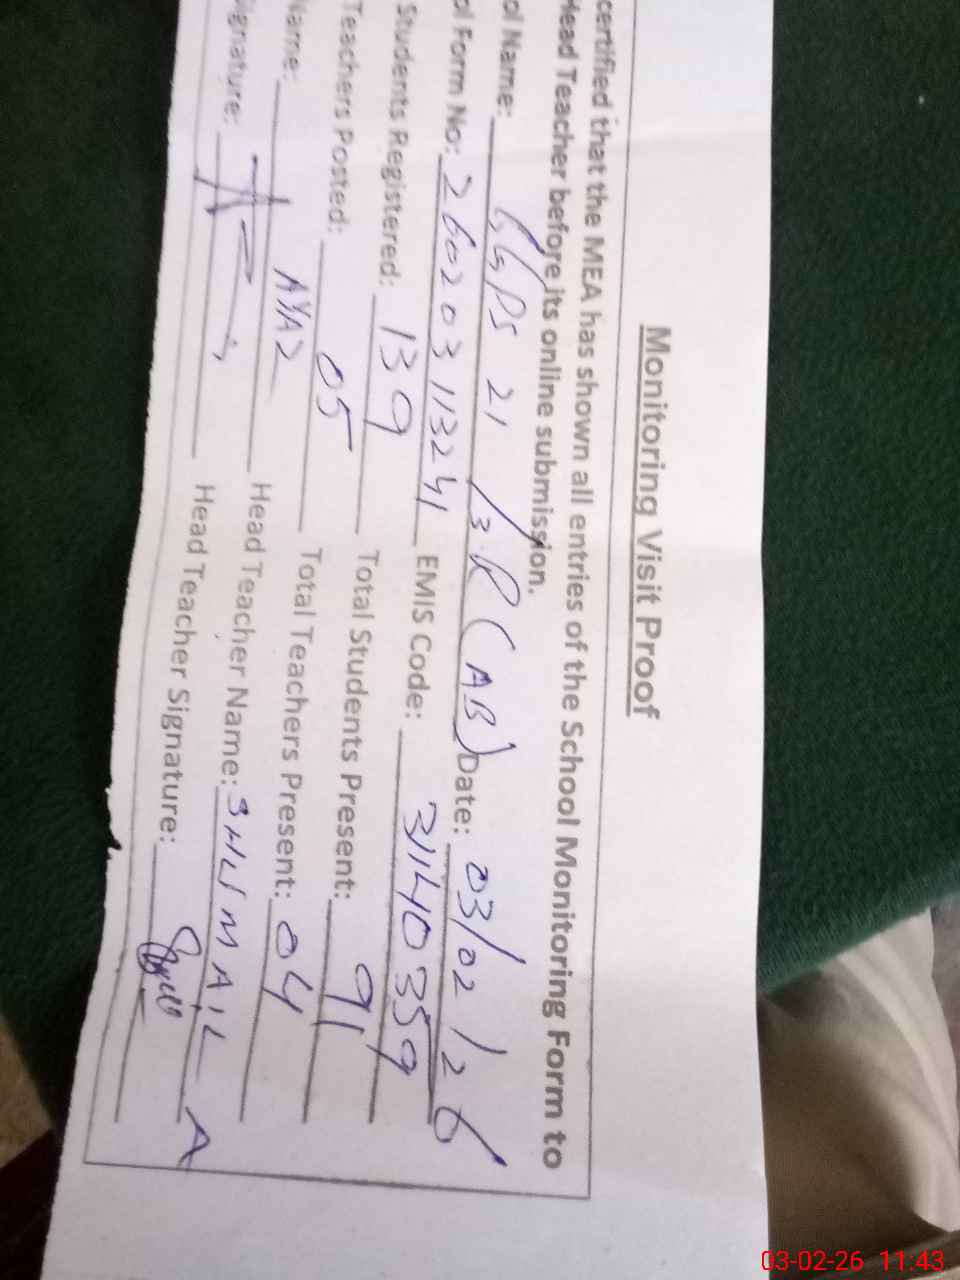 Monitoring Visit Proof
certified that the MEA has shown all entries of the School Monitoring Form to
Head Teacher before its online submission.
ol Name: GGPS 21 /3.R (AB) Date: 03/02/26
ol Form No: 260203113241 EMIS Code: 31140359
Students Registered: 139 Total Students Present: 91
Teachers Posted: 05 Total Teachers Present: 04
Name: AYAZ Head Teacher Name:
ignature: Head Teacher Signature:
03-02-26 11:43